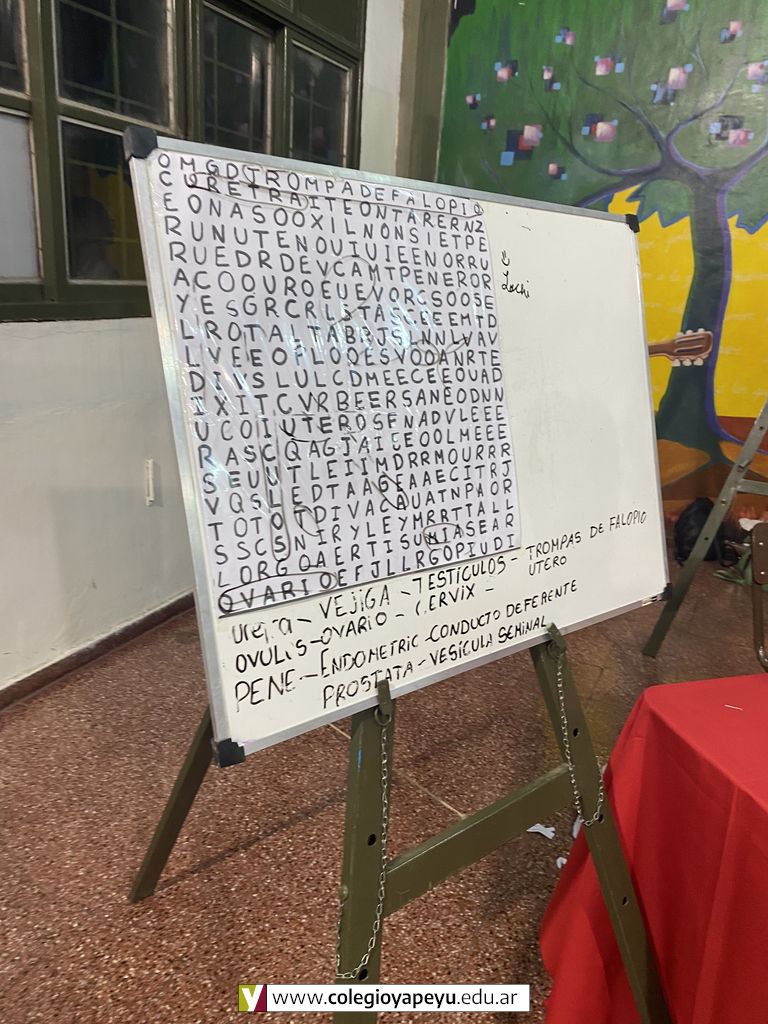 OMGDTROMPADEFALOPIO
CURETRAITEONTARERNZ
EONASOOXILNONSIETPE
RUNUTENOUIUIEENORRU
RUEDRDEVCAMTPENEROR
ACOOUROEUEVORCSOOSE
YESGRCRLSTASCEEEMTD
LROTALTABRJSLNNLVAV
LVEEOPLOQESVOOANRTE
DIISLULCDMEECEEOUAD
IXITCVRBEERSANEODNN
UCOIUTEROSFNADVLEEE
RASCQAGJAIEEOOLMEEE
SEUUTLEIIMDRRMOURRR
VQSLEDTAAGEAAECITRJ
TOTOTDIVACAUATNPAOR
SSCSNIRYLEYMRRTTALL
LORGOAERTISUMIASEAR
OVARIOEFJLLRGOPIUDI
Lochi
VEJIGA - TESTÍCULOS - TROMPAS DE FALOPIO
OVULOS - OVARIO - CERVIX - UTERO
PENE - ENDOMETRIC - CONDUCTO DEFERENTE
PROSTATA - VESÍCULA SEMINAL
www.colegioyapeyu.edu.ar